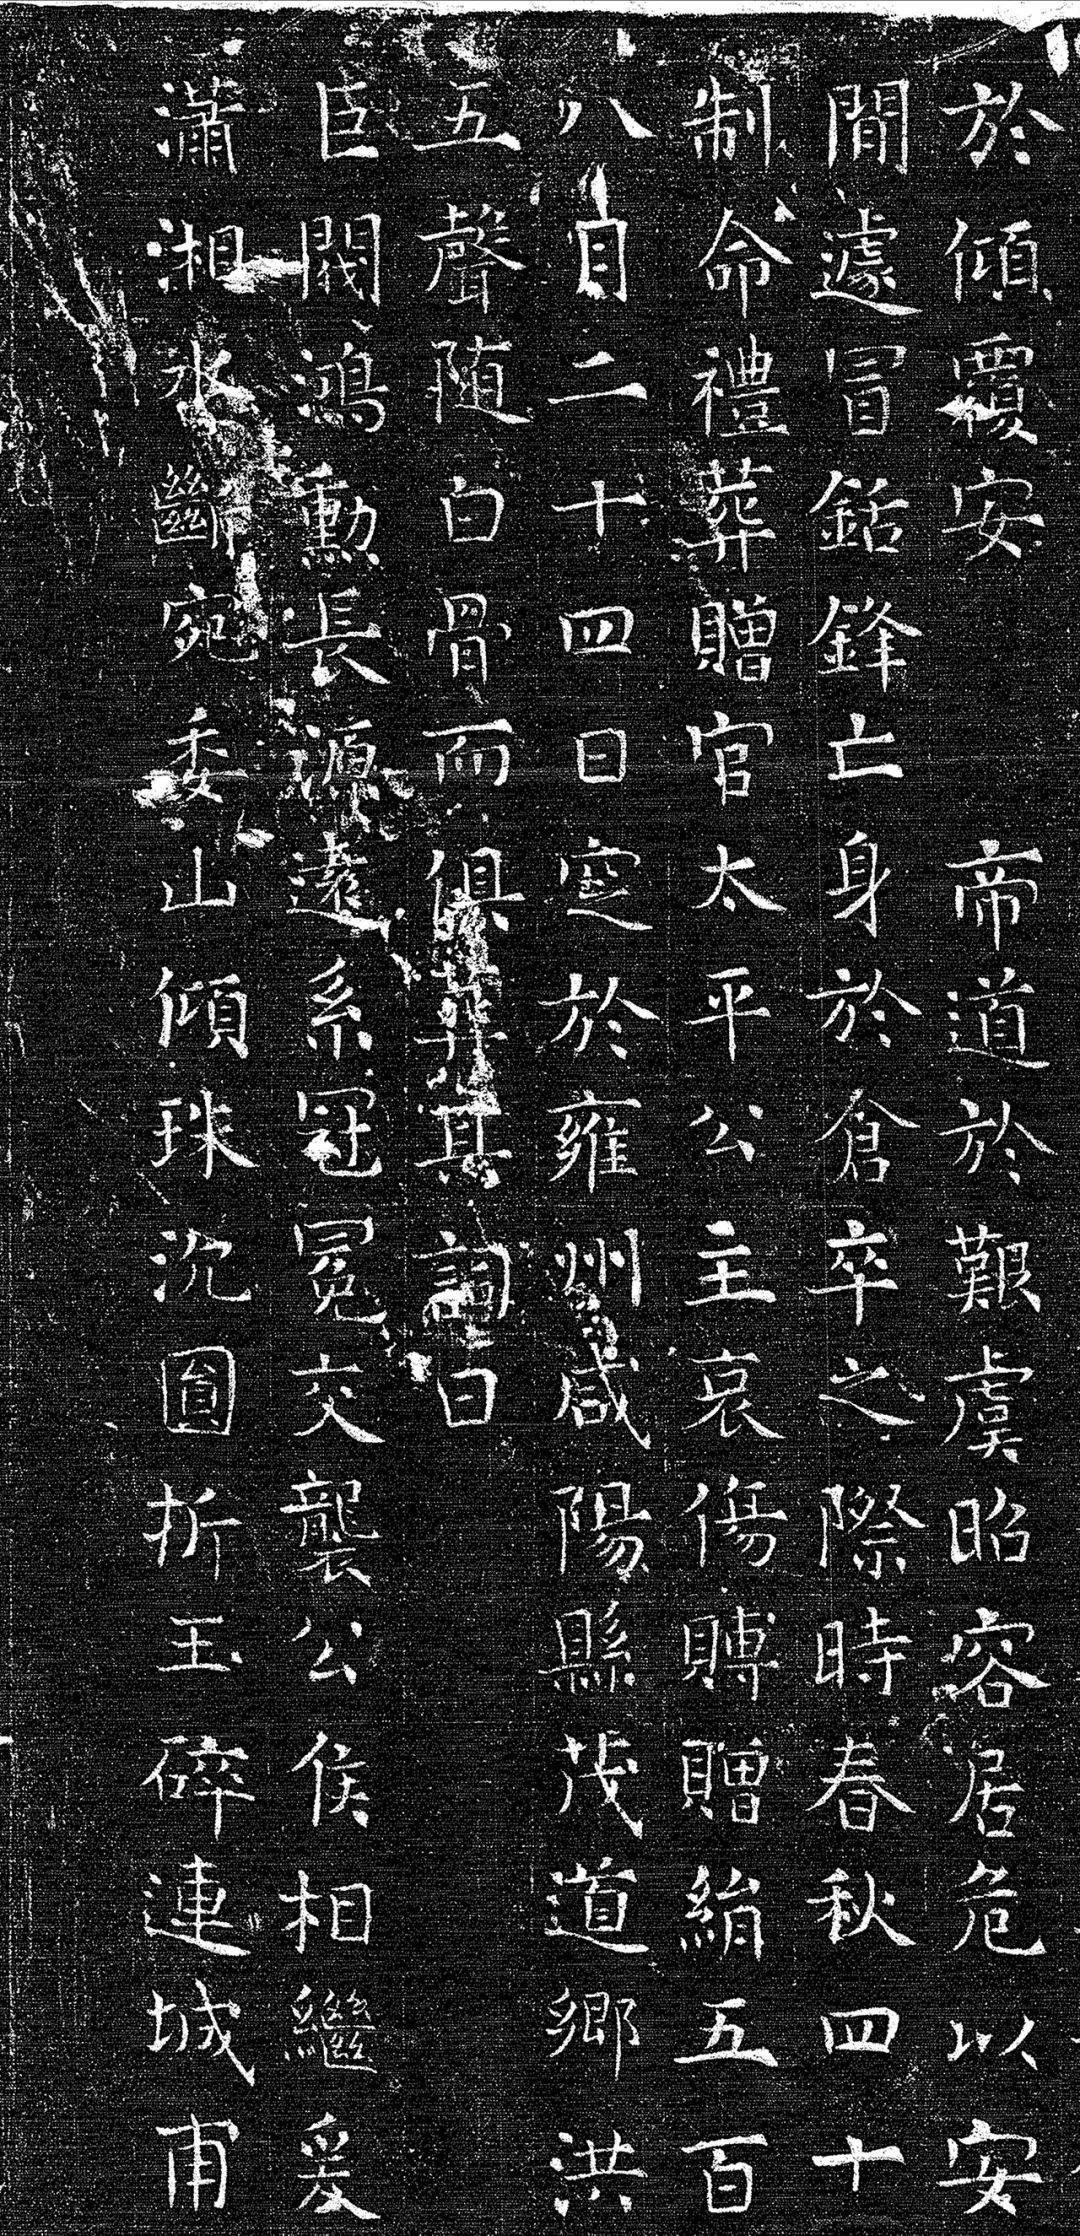 於傾覆安帝道於艱虞昭容居危以安
間遽冒銛鋒亡身於倉卒之際時春秋四十
制命禮葬贈官太平公主哀傷賻贈絹五百
八月二十四日窆於雍州咸陽縣茂道鄉洪
五聲隨白骨而俱葬其詞曰
巨閥鴻勳長源遠系冠冕交襲公侯相繼爰
瀟湘水斷宛委山傾珠沉圓折玉碎連城甫